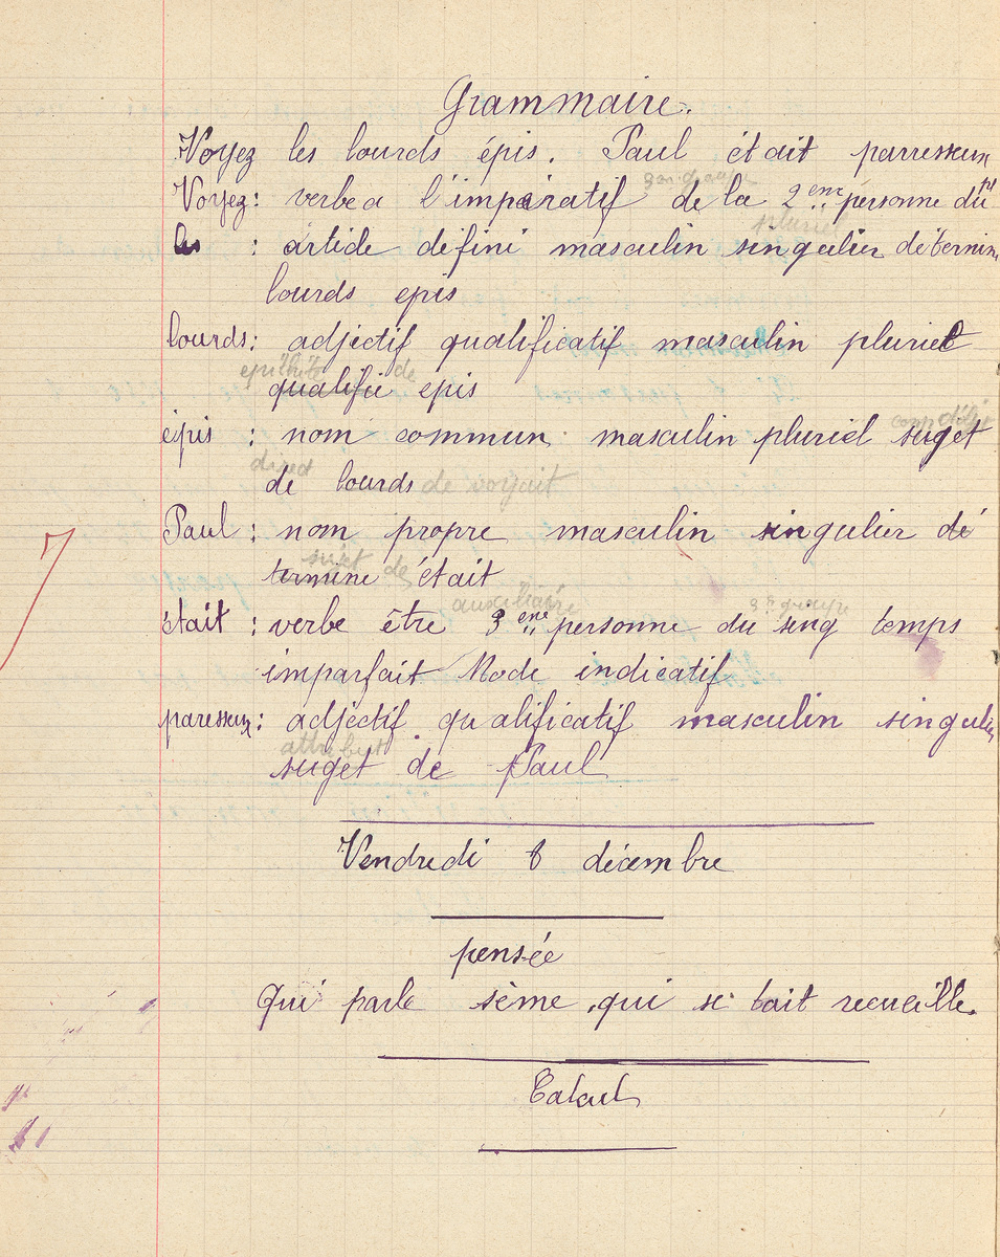 Grammaire.
Voyez les lourds épis. Paul était parresseux
3em groupe
Voyez: verbe a l'impératif de la 2 eme personne du pl
pluriel
les : article défini masculin singulier détermine
lourds epis
lourds: adjectif qualificatif masculin pluriel
epithète de
qualifie epis
épis : nom commun masculin pluriel suget
direct
de lourds de voyait
Paul : nom propre masculin singulier dé
sujet de
termine était
auxiliaire 3e groupe
était : verbe être 3 eme personne du sing temps
imparfait Mode indicatif
paresseux: adjectif qualificatif masculin singulier
attribut
suget de Paul
7
Vendredi 8 décembre
pensée
Qui parle sème, qui se tait recueille.
Calcul